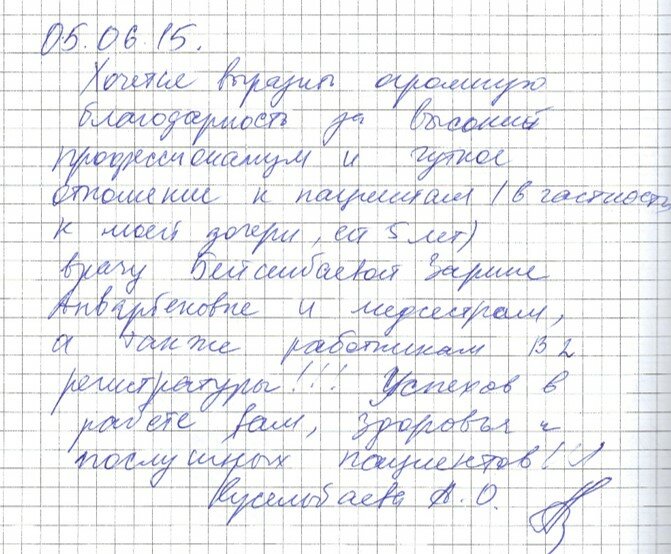 05.06.15.
Хочется выразить огромную
благодарность за высокий
профессионализм и чуткое
отношение к пациентам (в частности
к моей дочери, ей 5 лет)
врачу Бейсенбаевой Зарине
Анварбековне и медсестрам,
а также работникам
регистратуры!!! Успехов в
работе вам, здоровья и
послушных пациентов!!!
А.О.